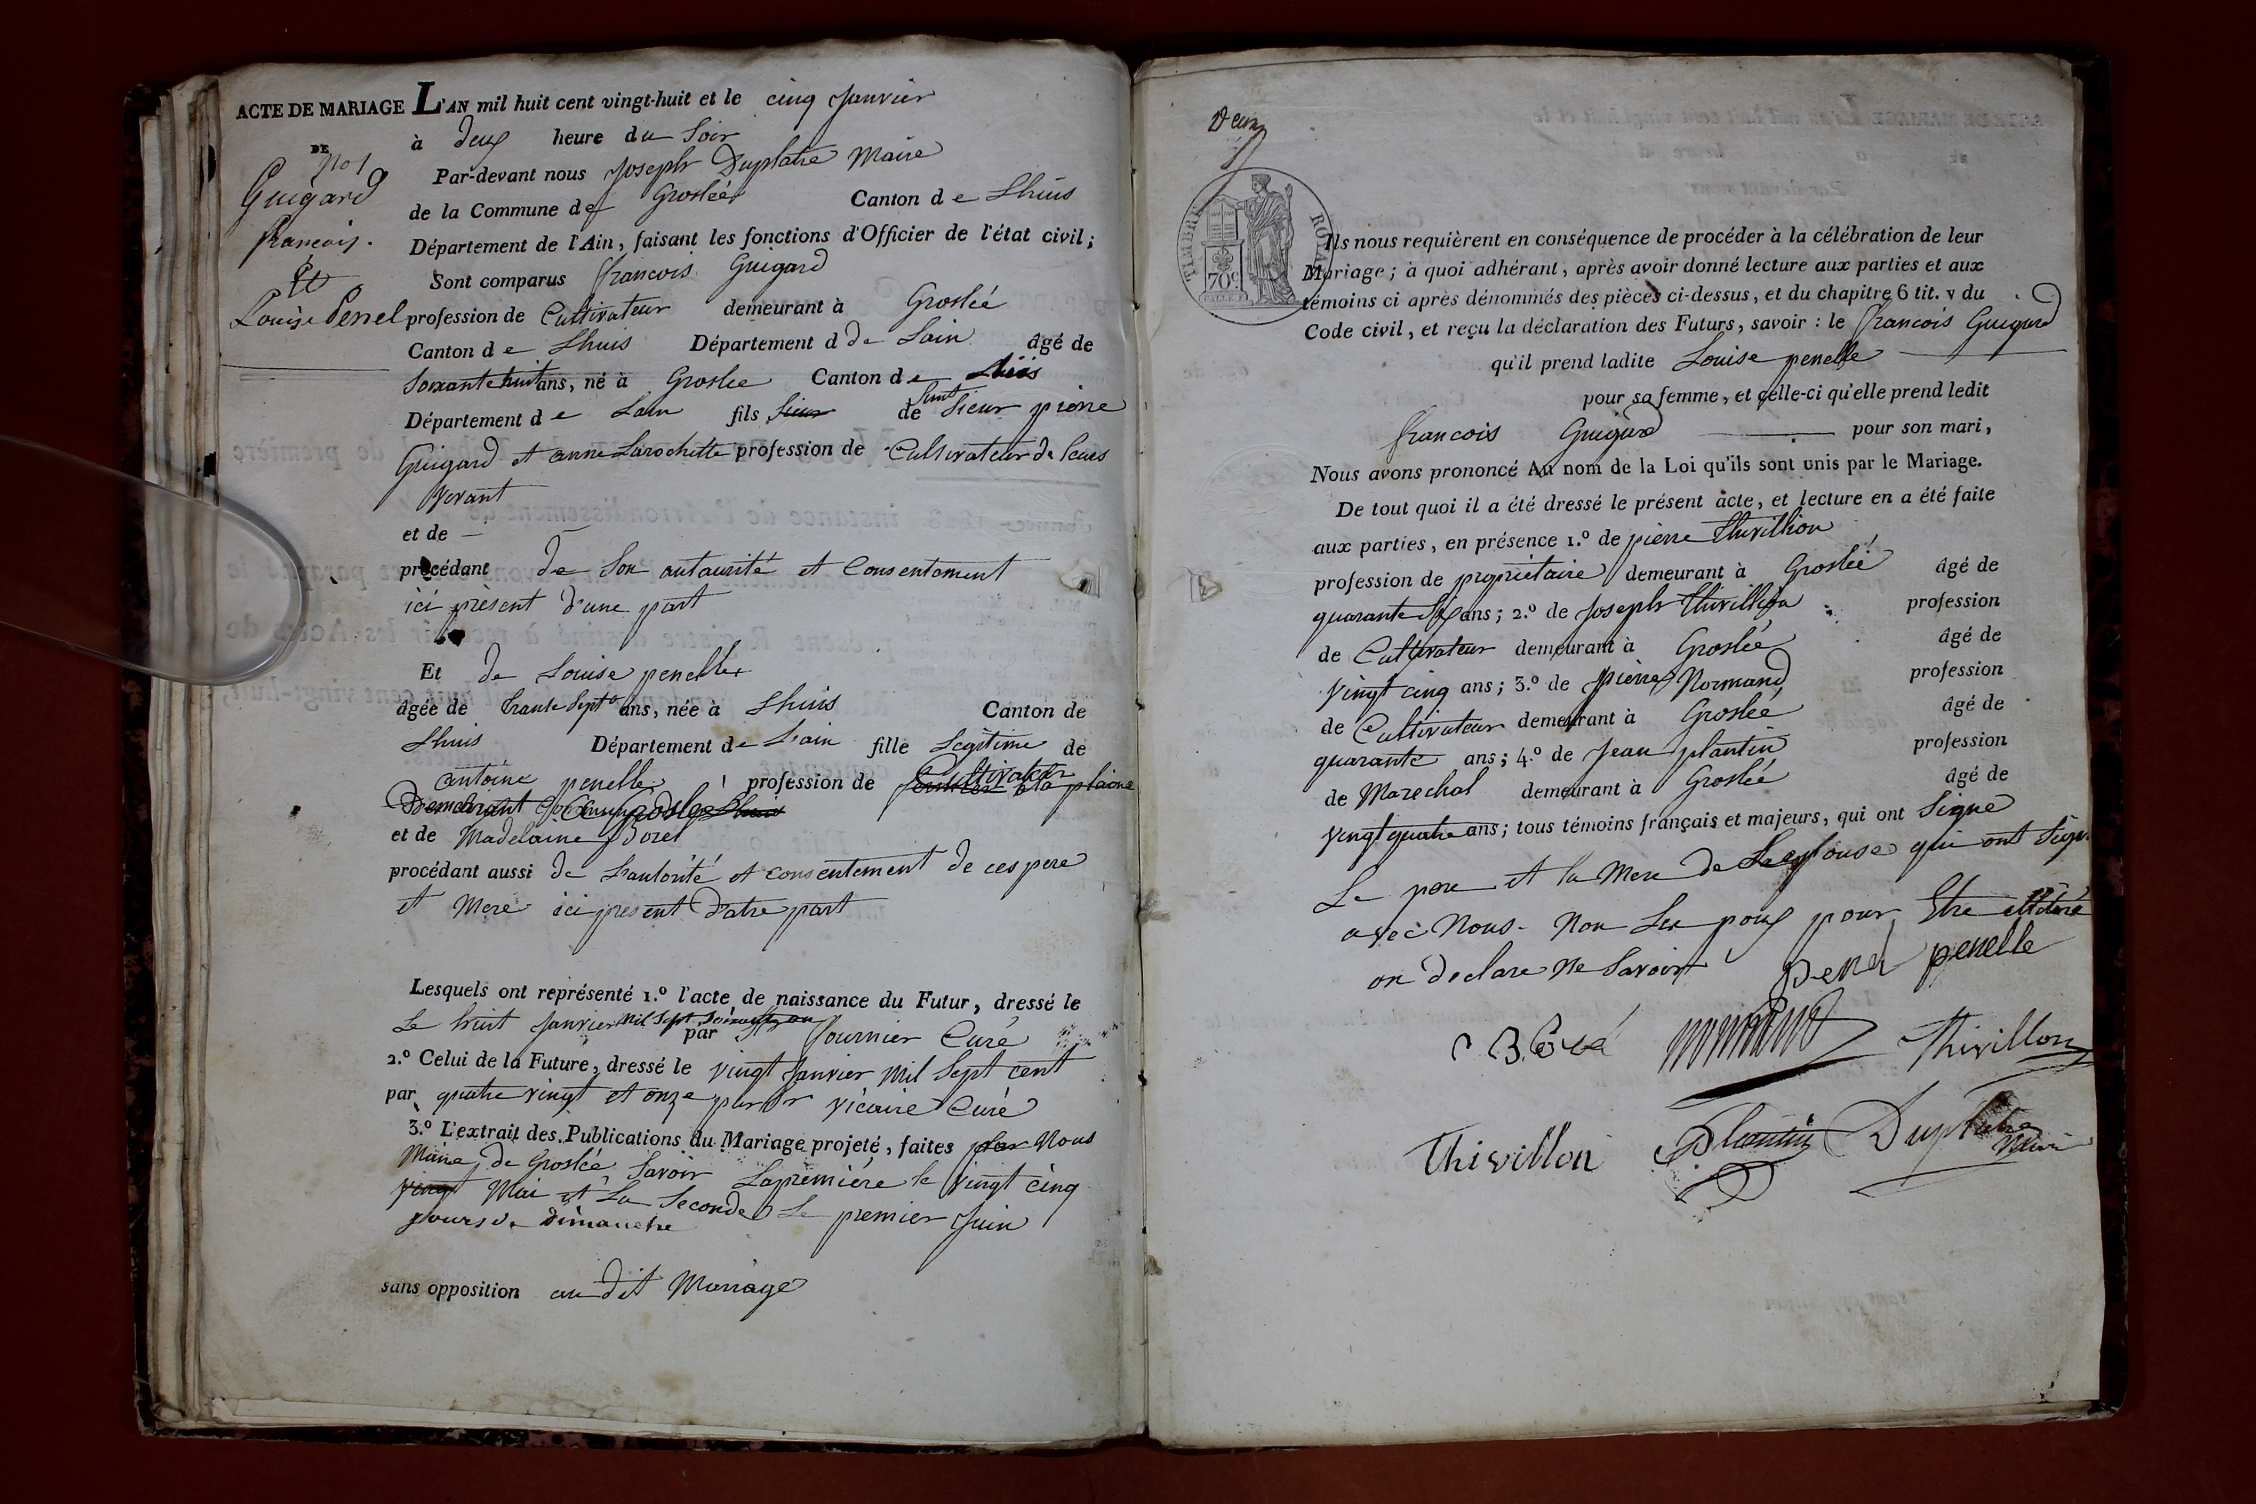 ACTE DE MARIAGE L'AN mil huit cent vingt-huit et le cinq Janvier
à deux heure du Soir
DE
No 1
Guigard
francois.
Et
Louise Penel
Par-devant nous Joseph Duplatre Maire
de la Commune de Groslée Canton de Lhuis
Département de l'Ain, faisant les fonctions d'Officier de l'état civil;
Sont comparus francois Guigard
profession de Cultivateur demeurant à Groslée
Canton de Lhuis Département d de Lain âgé de
Soixante huit ans, né à Groslee Canton de Lhuis
Département de Lain fils de Sieur pierre
Guigard et anne Larochette profession de Cultivateur de leurs
vivant
et de
procédant de Son autaurité et Consentement
ici présent d'une part
Et de Louise penelle
âgée de trante Sept ans, née à Lhuis Canton de
Lhuis Département de Lain fille Legitime de
antoine penelle profession de Cultivateur a la plaine
Demeurant Groslee
et de Madelaine Borel
procédant aussi de Lautorité et consentement de ces pere
et Mere ici present d'atre part
Lesquels ont représenté 1.º l'acte de naissance du Futur, dressé le
Le huit Janvier Mil Sept Soixante par Sr fournier Curé
2.º Celui de la Future, dressé le vingt Janvier Mil Sept cent
par quatre vingt et onze par Sr vicaire Curé
3.º L'extrait des Publications du Mariage projeté, faites par Nous
Maire de Groslée Savoir Lapremiére le vingt cinq
vingt Mai et La Seconde Le premier Juin
Jours de dimanche
sans opposition au dit Mariage
Deux
TIMBRE ROYAL
70c
Ils nous requièrent en conséquence de procéder à la célébration de leur
Mariage; à quoi adhérant, après avoir donné lecture aux parties et aux
témoins ci après dénommés des pièces ci-dessus, et du chapitre 6 tit. v du
Code civil, et reçu la déclaration des Futurs, savoir: le francois Guigard
qu'il prend ladite Louise penelle
pour sa femme, et celle-ci qu'elle prend ledit
francois Guigard pour son mari,
Nous avons prononcé Au nom de la Loi qu'ils sont unis par le Mariage.
De tout quoi il a été dressé le présent acte, et lecture en a été faite
aux parties, en présence 1.º de pierre thivillion
profession de propriétaire demeurant à Groslée âgé de
quarante Six ans; 2.º de Joseph thivillion profession
de Cultivateur demeurant à Groslée âgé de
vingt cinq ans; 3.º de pierre Normand profession
de Cultivateur demeurant à Groslée âgé de
quarante ans; 4.º de Jean plantin profession
de Marechal demeurant à Groslée âgé de
vingt quatre ans; tous témoins français et majeurs, qui ont Signe
Le pere et la Mere de Lepouse qui ont Signe
avec Nous. Non Les poux pour Etre
on declare Ne Savoir
penel penelle
Thivillon
Thivillon Plantin Duplatre
Maire